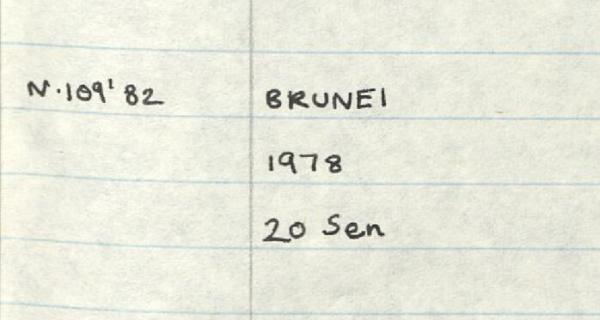 N.109'82 BRUNEI
1978
20 Sen